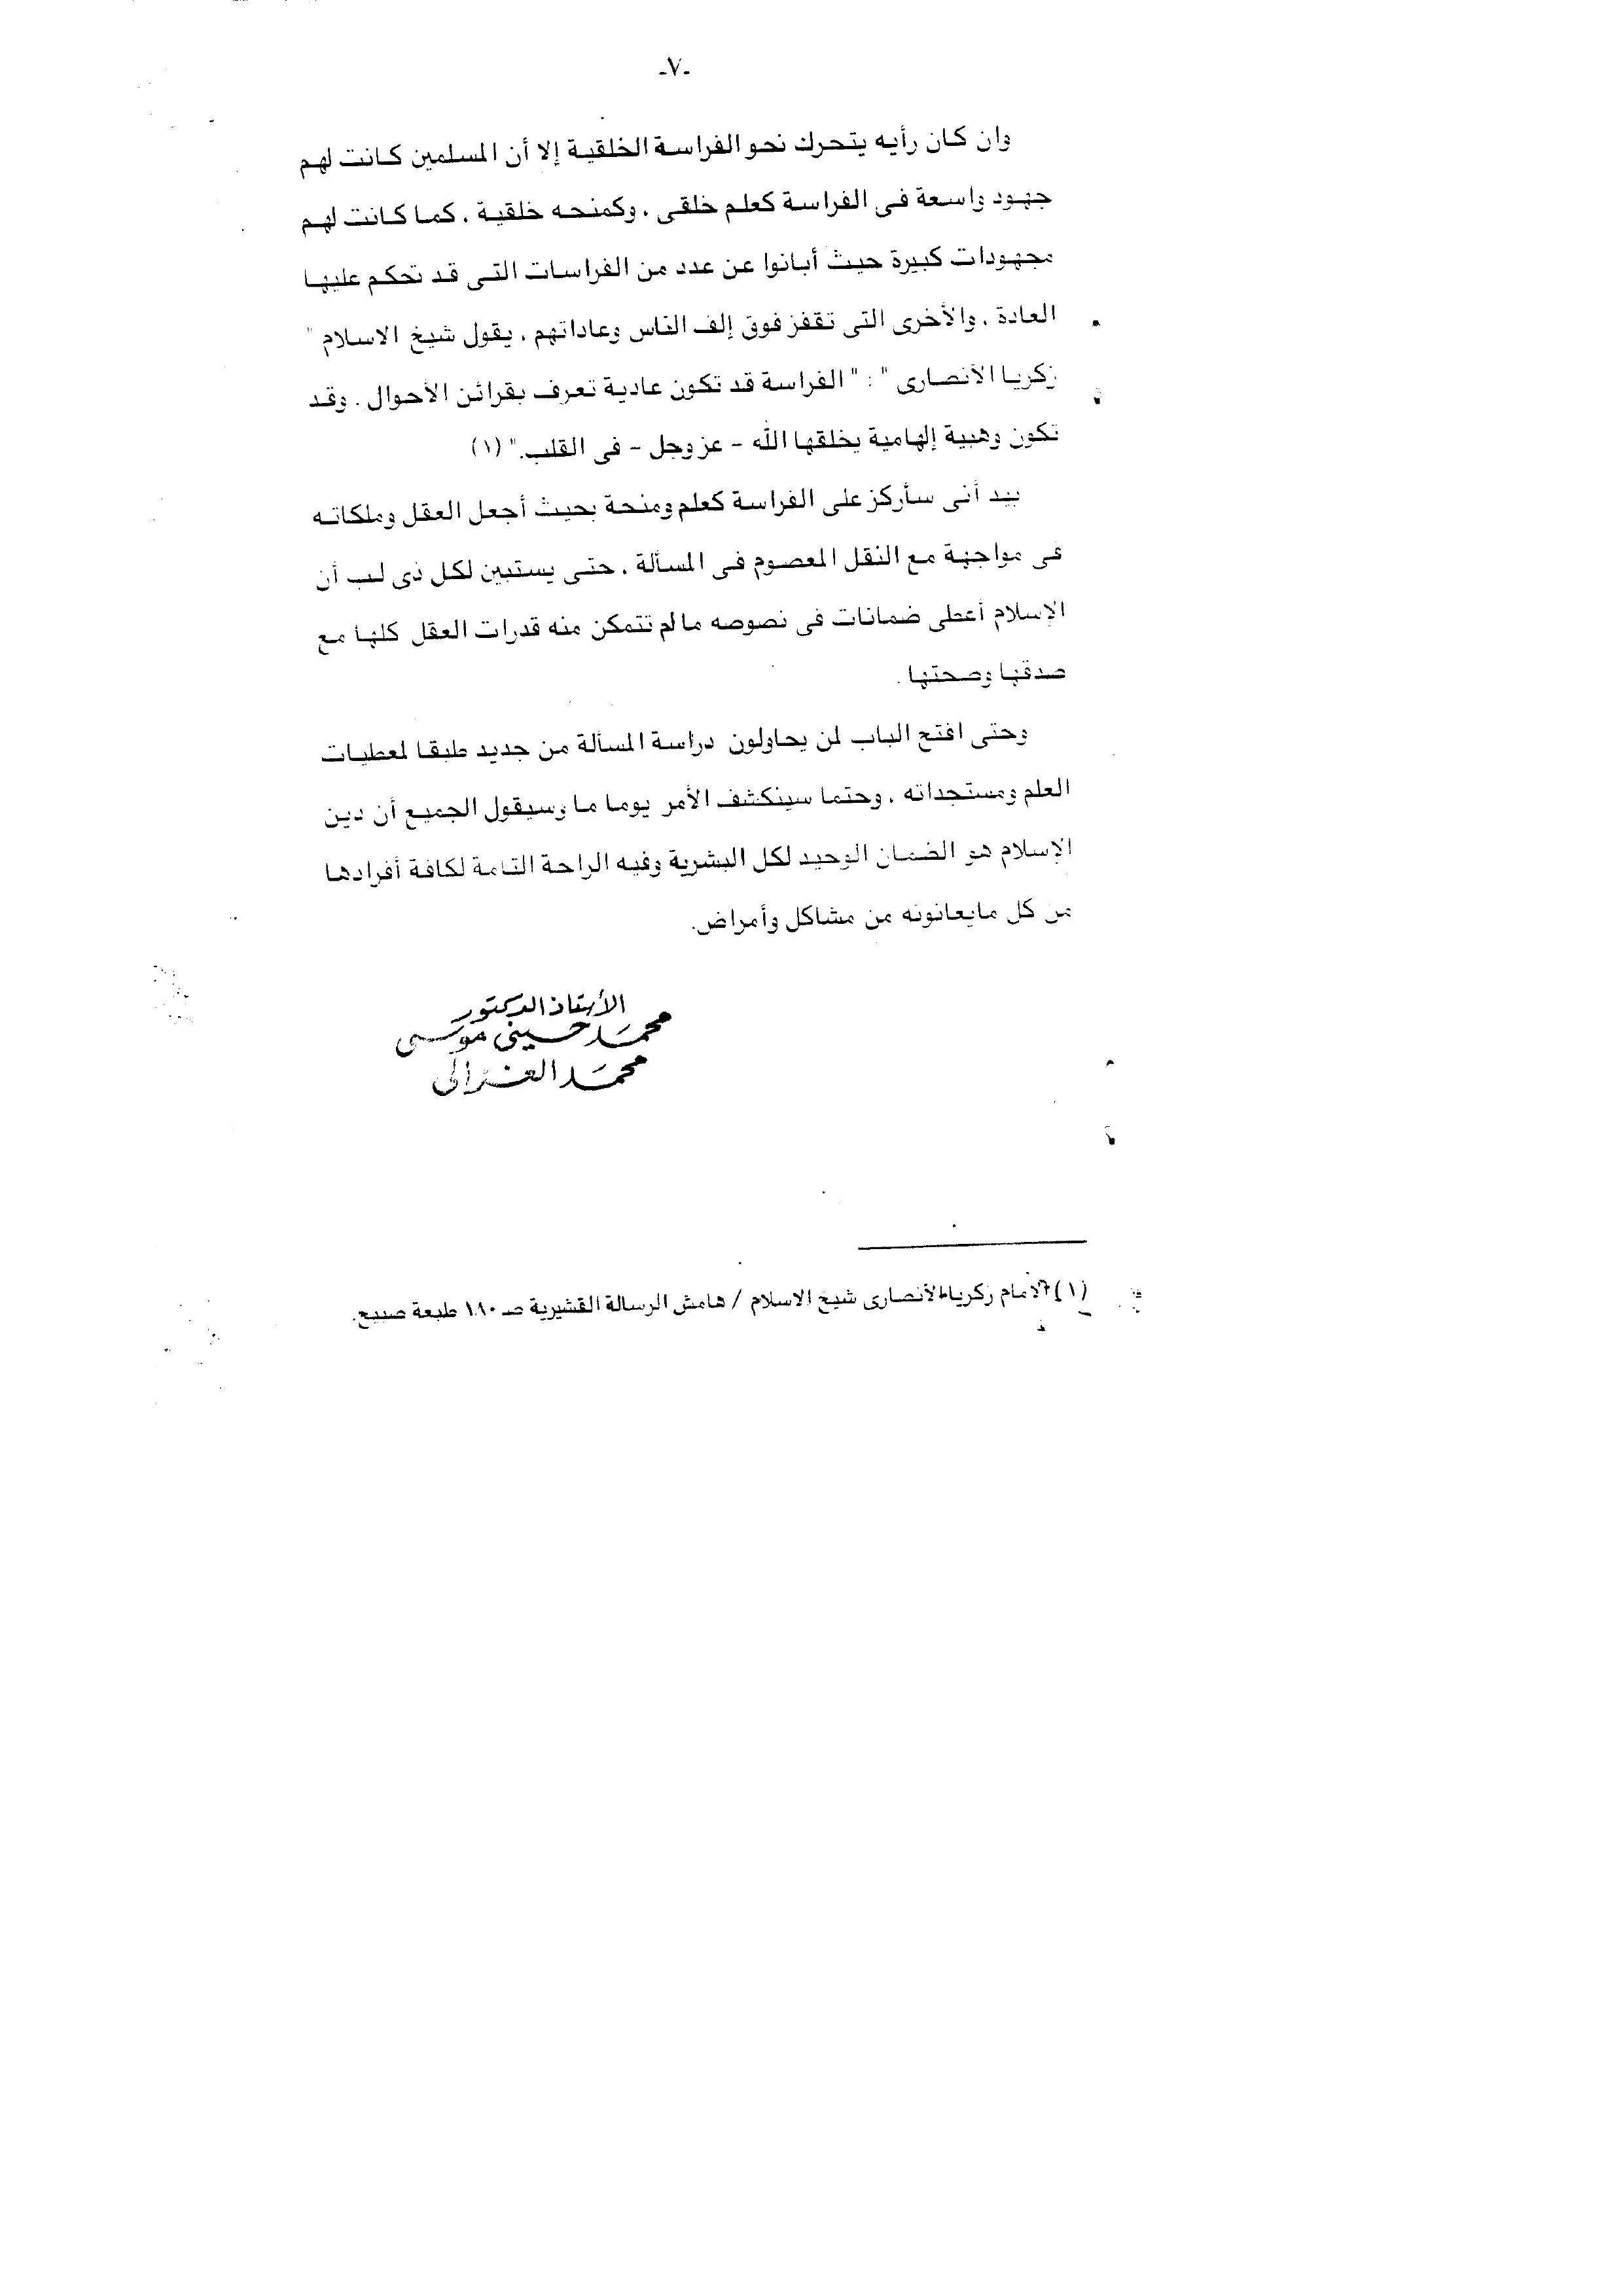 -٧-
وان كان رأيه يتحرك نحو الفراسة الخلقية إلا أن المسلمين كانت لهم
جهود واسعة فى الفراسة كعلم خلقى ، وكمنحه خلقية ، كما كانت لهم
مجهودات كبيرة حيث أبانوا عن عدد من الفراسات التى قد تحكم عليها
العادة ، والأخرى التى تقفز فوق إلف الناس وعاداتهم ، يقول شيخ الاسلام "
زكريا الأنصارى " : " الفراسة قد تكون عادية تعرف بقرائن الأحوال . وقد
تكون وهبية إلهامية يخلقها الله - عز وجل - فى القلب." (١)
بيد أنى سأركز على الفراسة كعلم ومنحة بحيث أجعل العقل وملكاته
فى مواجهة مع النقل المعصوم فى المسألة ، حتى يستبين لكل ذى لب أن
الإسلام أعطى ضمانات فى نصوصه مالم تتمكن منه قدرات العقل كلها مع
صدقها وصحتها .
وحتى افتح الباب لمن يحاولون دراسة المسألة من جديد طبقا لمعطيات
العلم ومستجداته ، وحتما سينكشف الأمر يوما ما وسيقول الجميع أن دين
الإسلام هو الضمان الوحيد لكل البشرية وفيه الراحة التامة لكافة أفرادها
من كل مايعانونه من مشاكل وأمراض.
الأستاذ الدكتور
محمد حسينى موسى
محمد الغزالى
(١) الامام زكريا الأنصارى شيخ الاسلام / هامش الرسالة القشيرية صـ ١٨٠ طبعة صبيح.